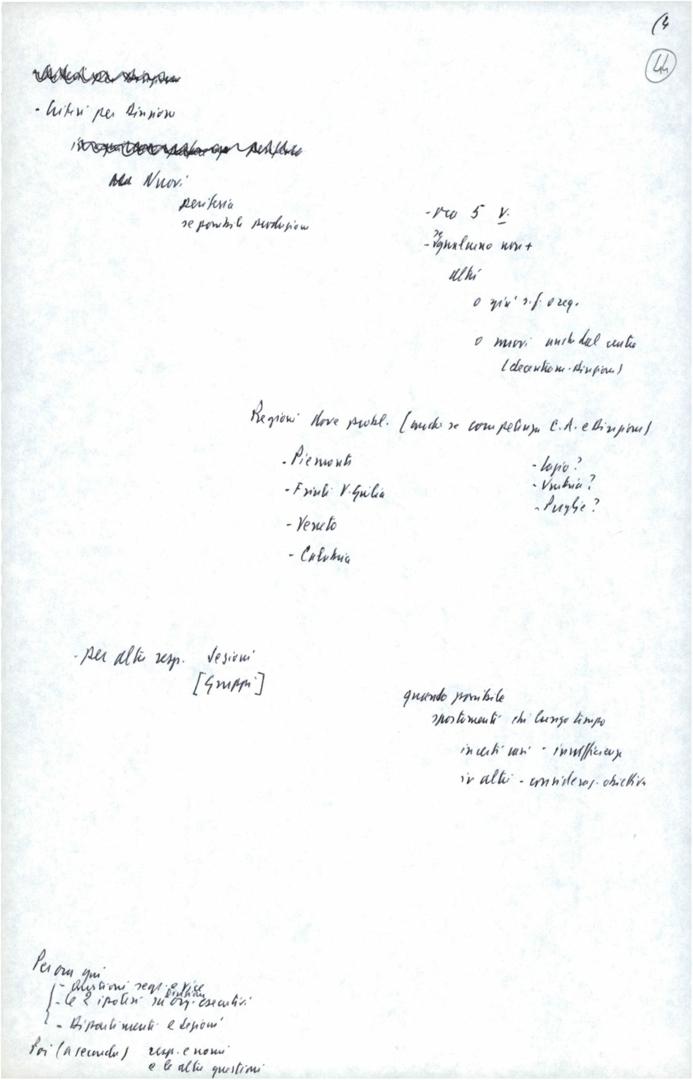 (4
44
- Criteri per Direzione
Nuovi
periferia
se possibile produzione
- no 5 V.
- se qualcuno non +
altri
o già s.f. o reg.
o nuovi anche dal centro
(decentram. Direzione)
Regioni dove probl. (anche se competenza C.C. e Direzione)
- Piemonte
- Friuli V. Giulia
- Veneto
- Calabria
- Lazio?
- Umbria?
- Puglie?
- per altri resp. sezioni
[Gruppi]
quando possibile
spostamenti chi lungo tempo
in certi casi - insufficienze
in altri - consideraz. obiettiva
Per ora qui
- questioni segr. e Vice
- le 2 ipotesi su org. esecutivi
- Dipartimenti e sezioni
Poi (a seconda) resp. e nomi
e le altre questioni